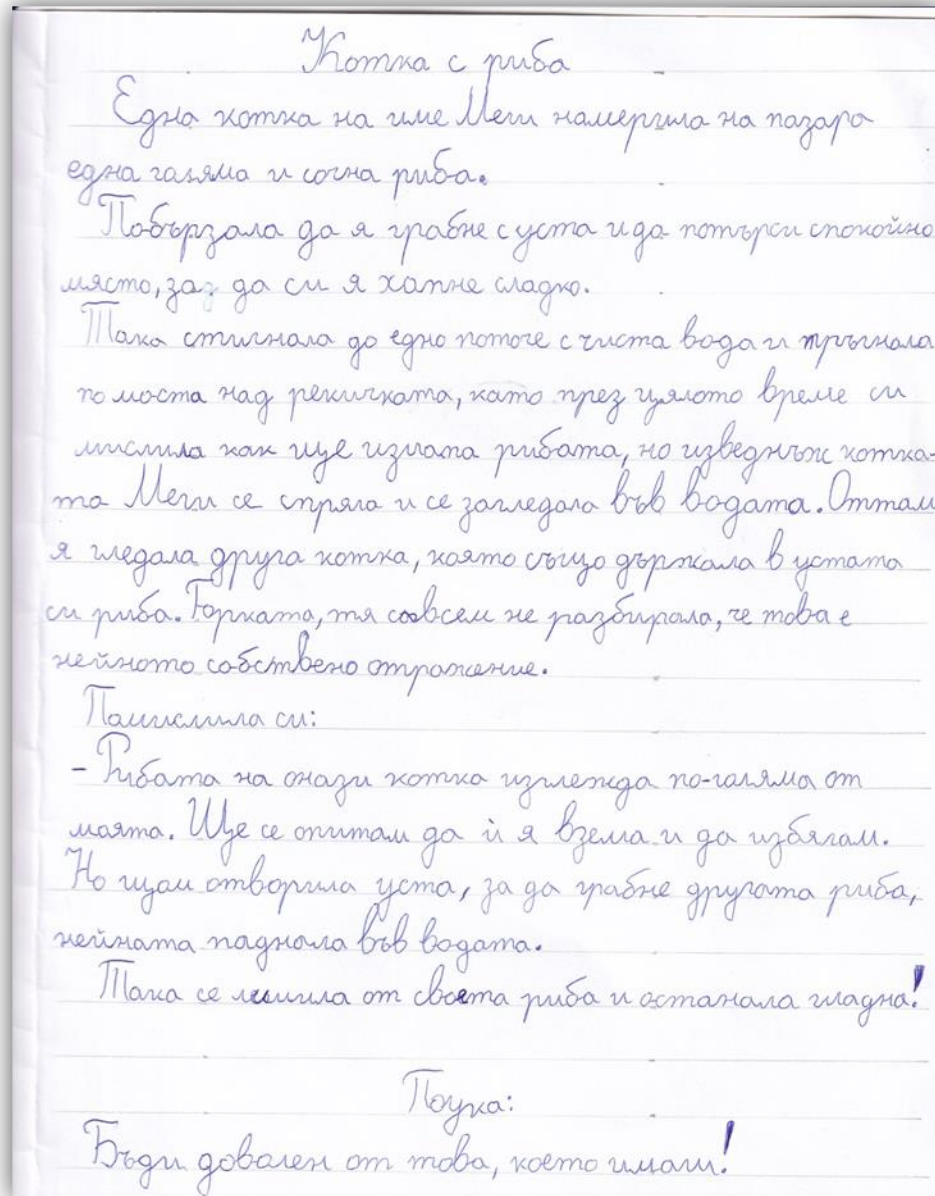 Котка с риба
Една котка на име Меги намерила на пазара
една голяма и сочна риба.
Побързала да я грабне с уста и да потърси спокойно
място, за да си я хапне сладко.
Така стигнала до едно поточе с чиста вода и тръгнала
по моста над рекичката, като през цялото време си
мислила как ще излапа рибата, но изведнъж котка-
та Меги се спряла и се загледала във водата. Оттам
я гледала друга котка, която също държала в устата
си риба. Горката, тя съвсем не разбирала, че това е
нейното собствено отражение.
Помислила си:
- Рибата на онази котка изглежда по-голяма от
моята. Ще се опитам да ѝ я взема и да избягам.
Но щом отворила уста, за да грабне другата риба,
нейната паднала във водата.
Така се лишила от своята риба и останала гладна!
Поука:
Бъди доволен от това, което имаш!